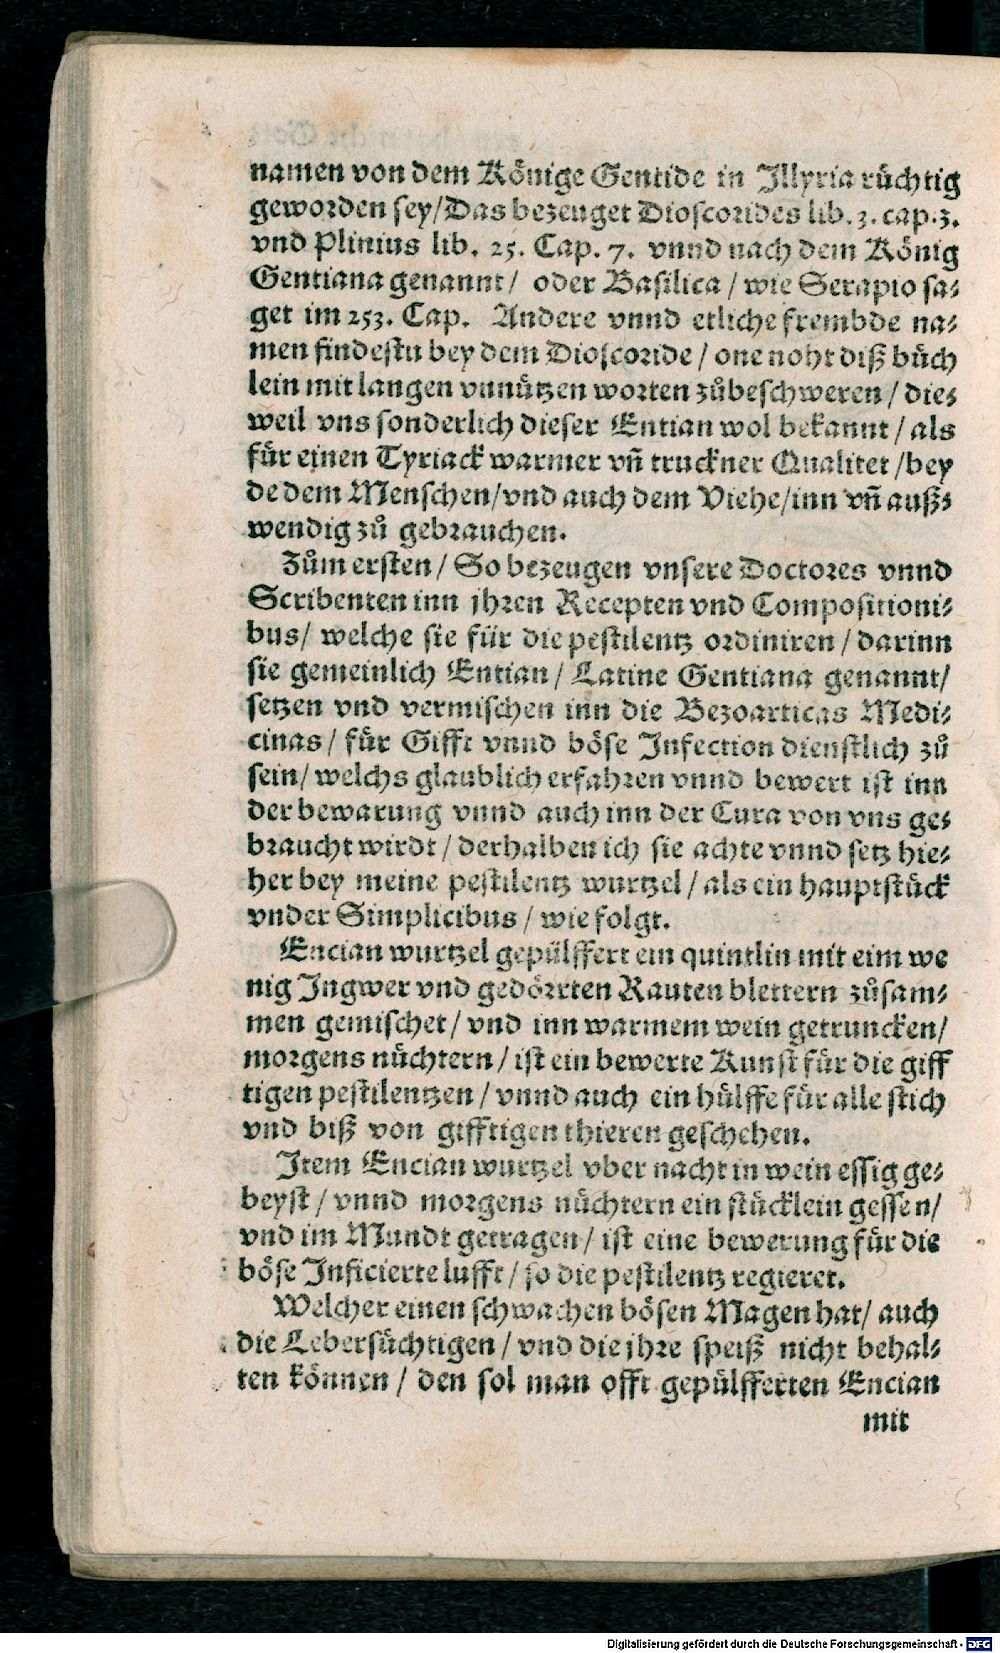 namen von dem Könige Gentide in Jllyria rüchtig
geworden sey/Das bezeuget Dioscorides lib. 3. cap. 3.
vnd Plinius lib. 25. Cap. 7. vnnd nach dem König
Gentiana genannt/ oder Basilica / wie Serapio sa-
get im 253. Cap. Andere vnnd etliche frembde na-
men findestu bey dem Dioscoride / one noht diß büch
lein mit langen vnnützen worten zůbeschweren / die-
weil vns sonderlich dieser Entian wol bekannt / als
für einen Tyriack warmer vñ truckner Qualitet /bey
de dem Menschen/vnd auch dem Viehe/inn vñ auß-
wendig zů gebrauchen.
Zům ersten / So bezeugen vnsere Doctores vnnd
Scribenten inn jhren Recepten vnd Compositioni-
bus/ welche sie für die pestilentz ordiniren / darinn
sie gemeinlich Entian / Latine Gentiana genannt/
setzen vnd vermischen inn die Bezoarticas Medi-
cinas / für Gifft vnnd böse Infection dienstlich zů
sein/ welchs glaublich erfahren vnnd bewert ist inn
der bewarung vnnd auch inn der Cura von vns ge-
braucht wirdt / derhalben ich sie achte vnnd setz hie-
her bey meine pestilentz wurtzel / als ein hauptstück
vnder Simplicibus / wie folgt.
Encian wurtzel gepülffert ein quintlin mit eim we
nig Jngwer vnd gedörrten Rauten blettern zůsam-
men gemischet / vnd inn warmem wein getruncken/
morgens nüchtern / ist ein bewerte Kunst für die giff
tigen pestilentzen / vnnd auch ein hülffe für alle stich
vnd biß von gifftigen thieren geschehen.
Jtem Encian wurtzel vber nacht in wein essig ge-
beyst / vnnd morgens nüchtern ein stücklein gessen/
vnd im Mundt getragen / ist eine bewerung für die
böse Jnficierte lufft / so die pestilentz regieret.
Welcher einen schwachen bösen Magen hat/ auch
die Lebersüchtigen / vnd die jhre speiß nicht behal-
ten können / den sol man offt gepülfferten Encian
mit
Digitalisierung gefördert durch die Deutsche Forschungsgemeinschaft - DFG